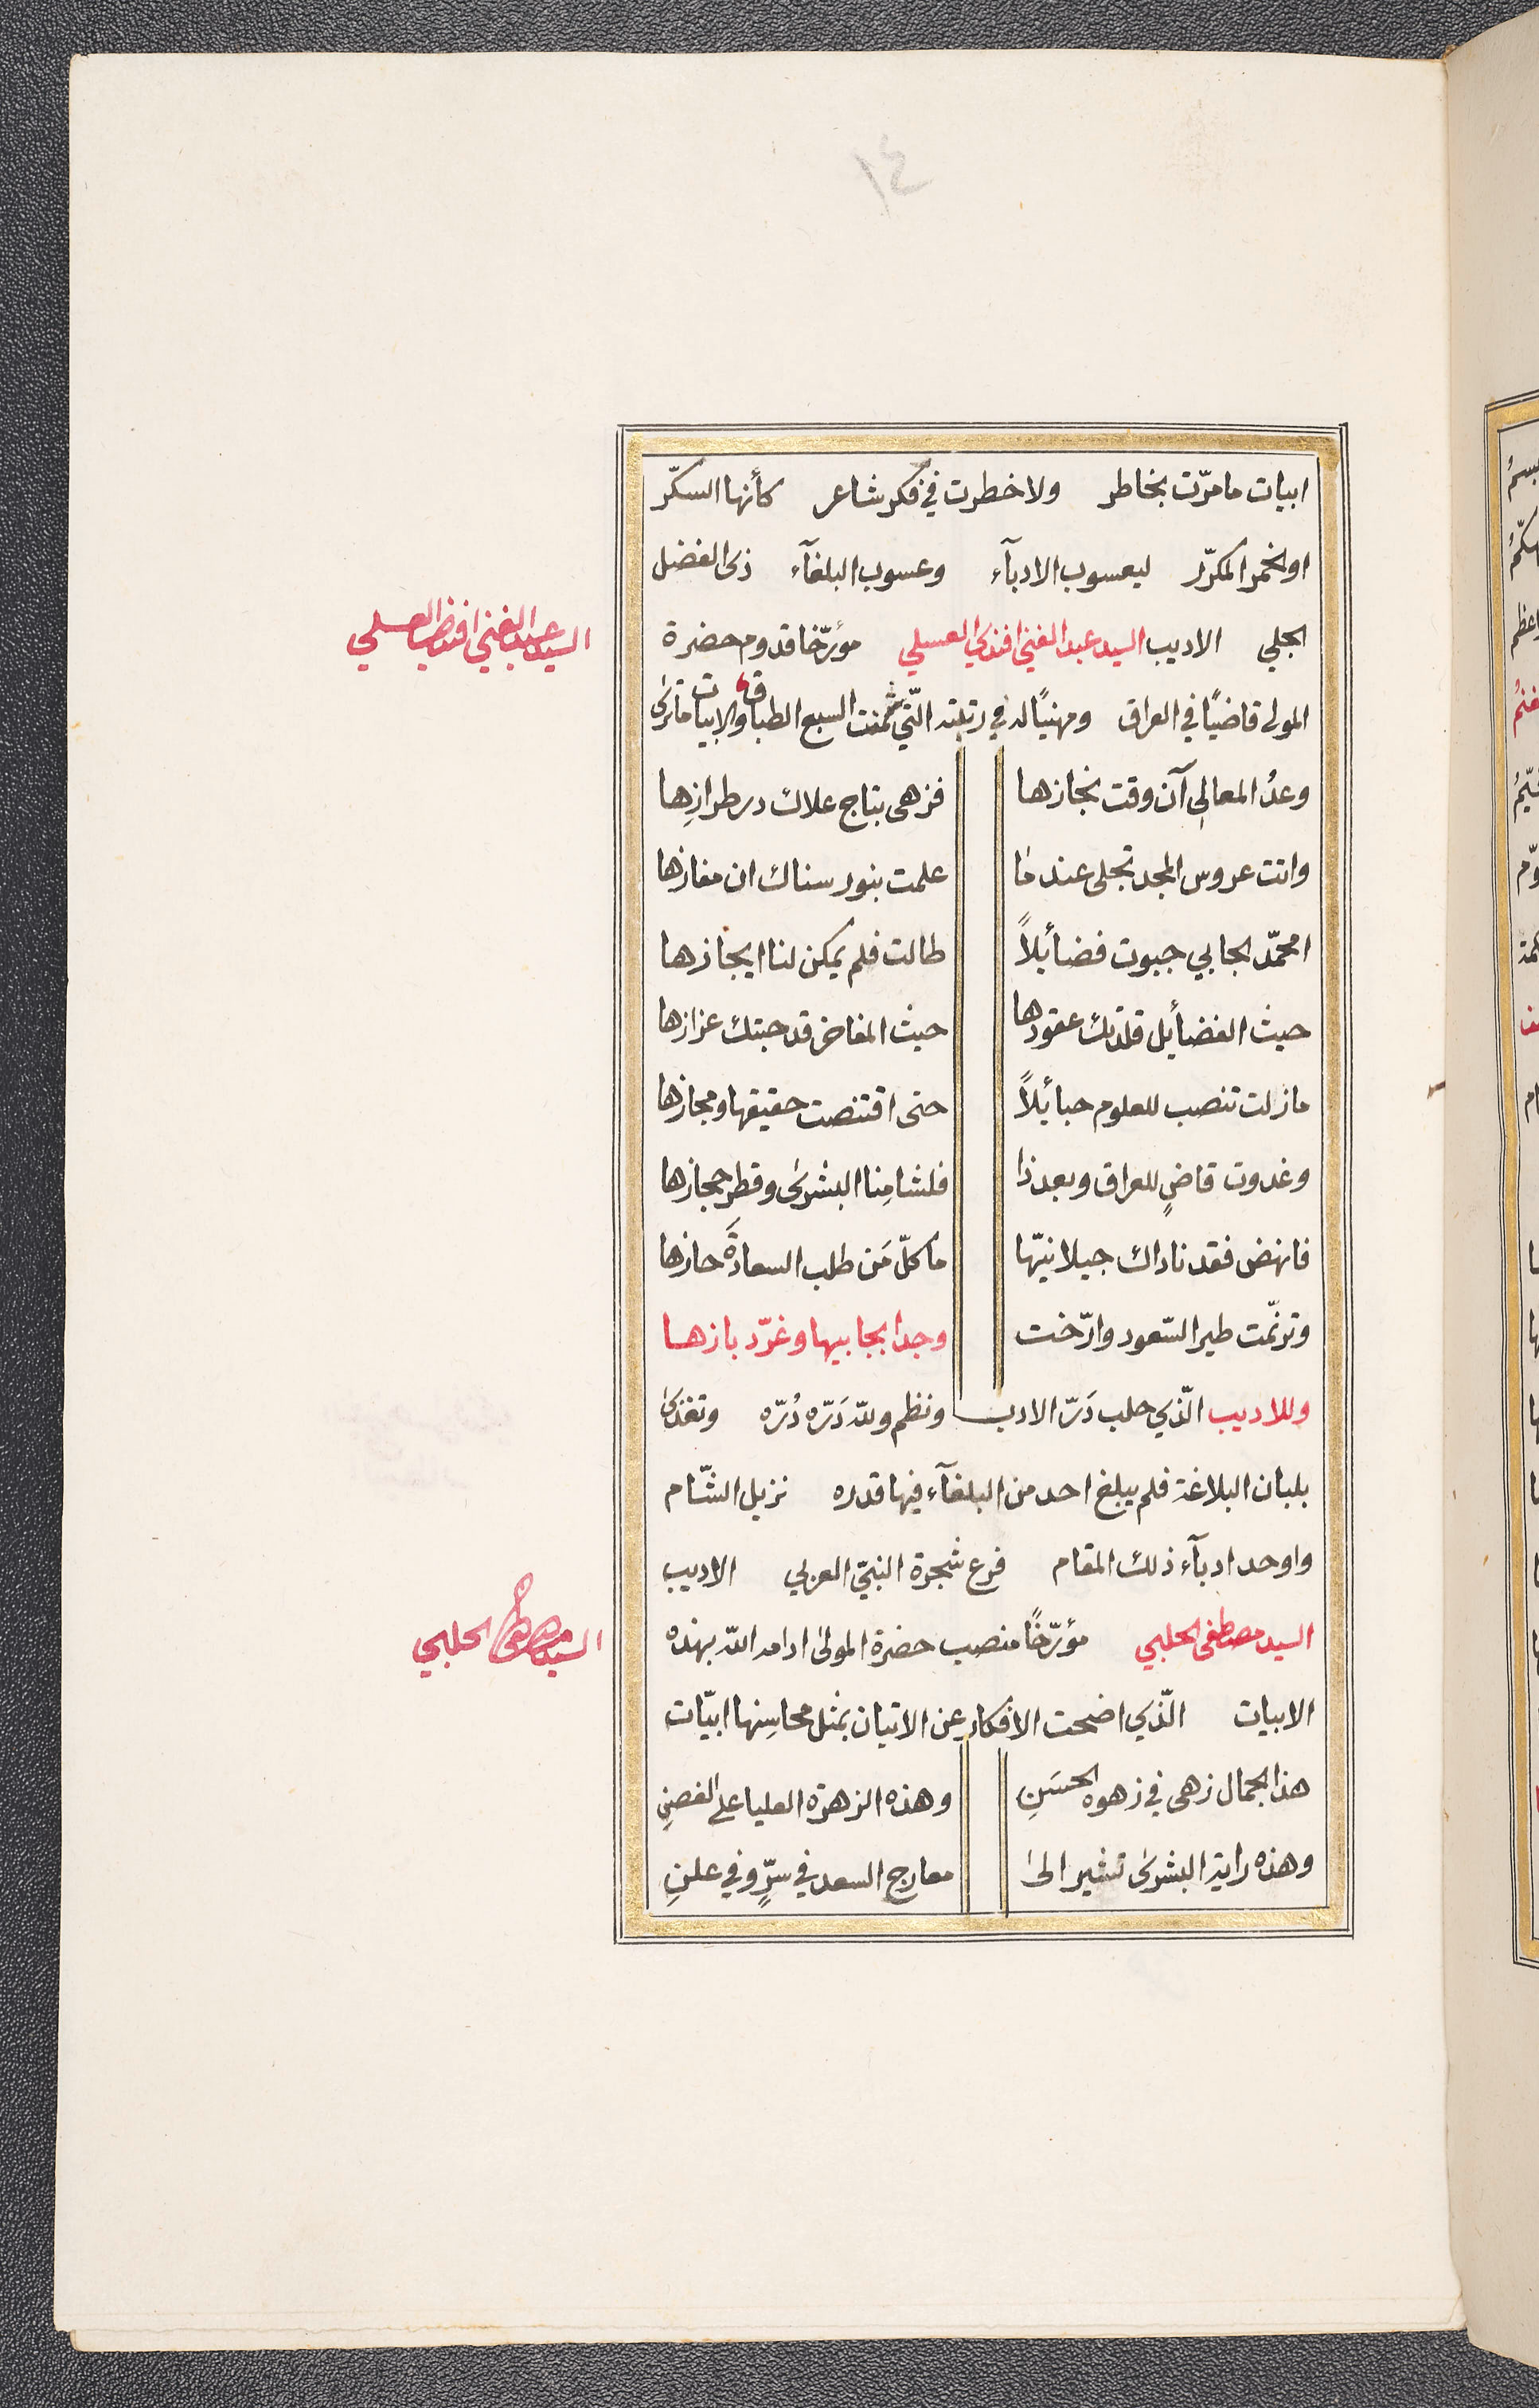 ١٤
ابيات ما مرّت بخاطر ولا خطرت في فكر شاعر كأنها السكّر
او الخمر المكرّر ليعسوب الادبآء وعسوب البلغآء ذى الفضل
الجلي الاديب السيد عبد الغني افندي العسلي مؤرّخا قدوم حضرة
السيد عبد الغني افندي العسلي
المولى قاضيًا في العراق ومهنيًا له في رتبته التّي ثمنت السبع الطباق والابيات ما ترى
وعدُ المعالي آن وقت نجازها فزهى بتاج علاك در طرازِها
واتت عروس المجد تجلى عندما علمت بنور سناك ان مفازها
امحمّد الجابي جبوت فضأيلاً طالت فلم يمكن لنا ايجازها
حيث الفضأيل قلدتك عقودها حيث المفاخر قد حبتك عزازها
ما زلت تنصب للعلوم حبأيلاً حتى اقتنصت حقيقها ومجازها
وغدوت قاضٍ للعراق وبعد ذا فلشامِنا البشرى وقطر حجازها
فانهض فقد ناداك جيلانيّها ما كلّ مَن طلب السعادةَ حازها
وترنّمت طير السّعود وارّخت وجدا بجابيها وغرّد بازها
وللاديب الّذي حلب دَرّ الادب ونظم ولله دَرّه دُرّه وتغذى
بلبان البلاغة فلم يبلغ احد من البلغآء فيها قدره نزيل الشّام
واوحد ادبآء ذلك المقام فرع شجرة النبيّ العربي الاديب
السيد مصطفى الحلبي مؤرّخًا منصب حضرة المولى ادامه الله بهذه
السيد مصطفى الحلبي
الابيات الّذي اضحت الافكار عن الاتيان بمثل محاسِنها ابيّات
هذا الجمال زهى في زهوه الحسَنِ وهذه الزهرة العليا على الغصنِ
وهذه راية البشرى تشير الى معارج السعد في سرٍّ وفي علنِ